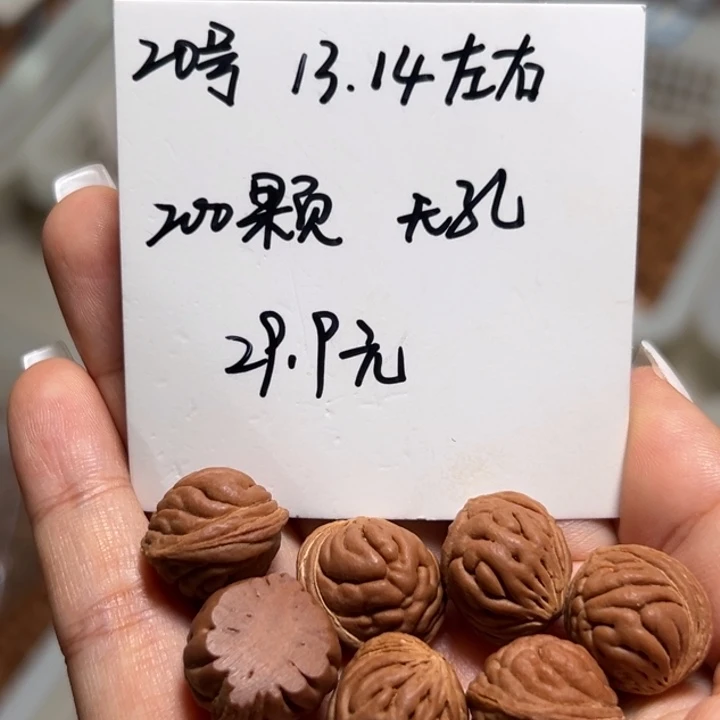 20号 13.14左右
200颗 无孔
29.9元